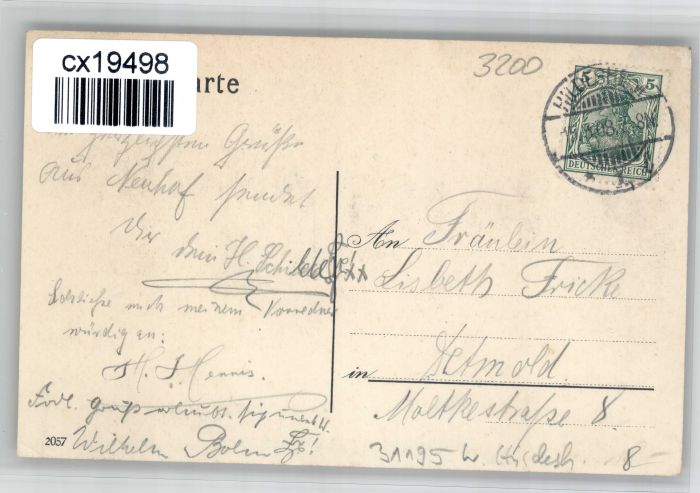 cx19498
arte
3200
5 5
DEUTSCHES REICH
herzlichsten Grüße
aus Neuhof sendet
Dir Dein H. Schi
Schließe mich meinem Vorredner
würdig an:
H. Hennis.
Frdl. Gruß erlaubt. sig
Wilhelm
2057
An Fräulein
Lisbeth Fricke
in Detmold.
Moltkestraße 8.
31195 W. Hildesh. 8-